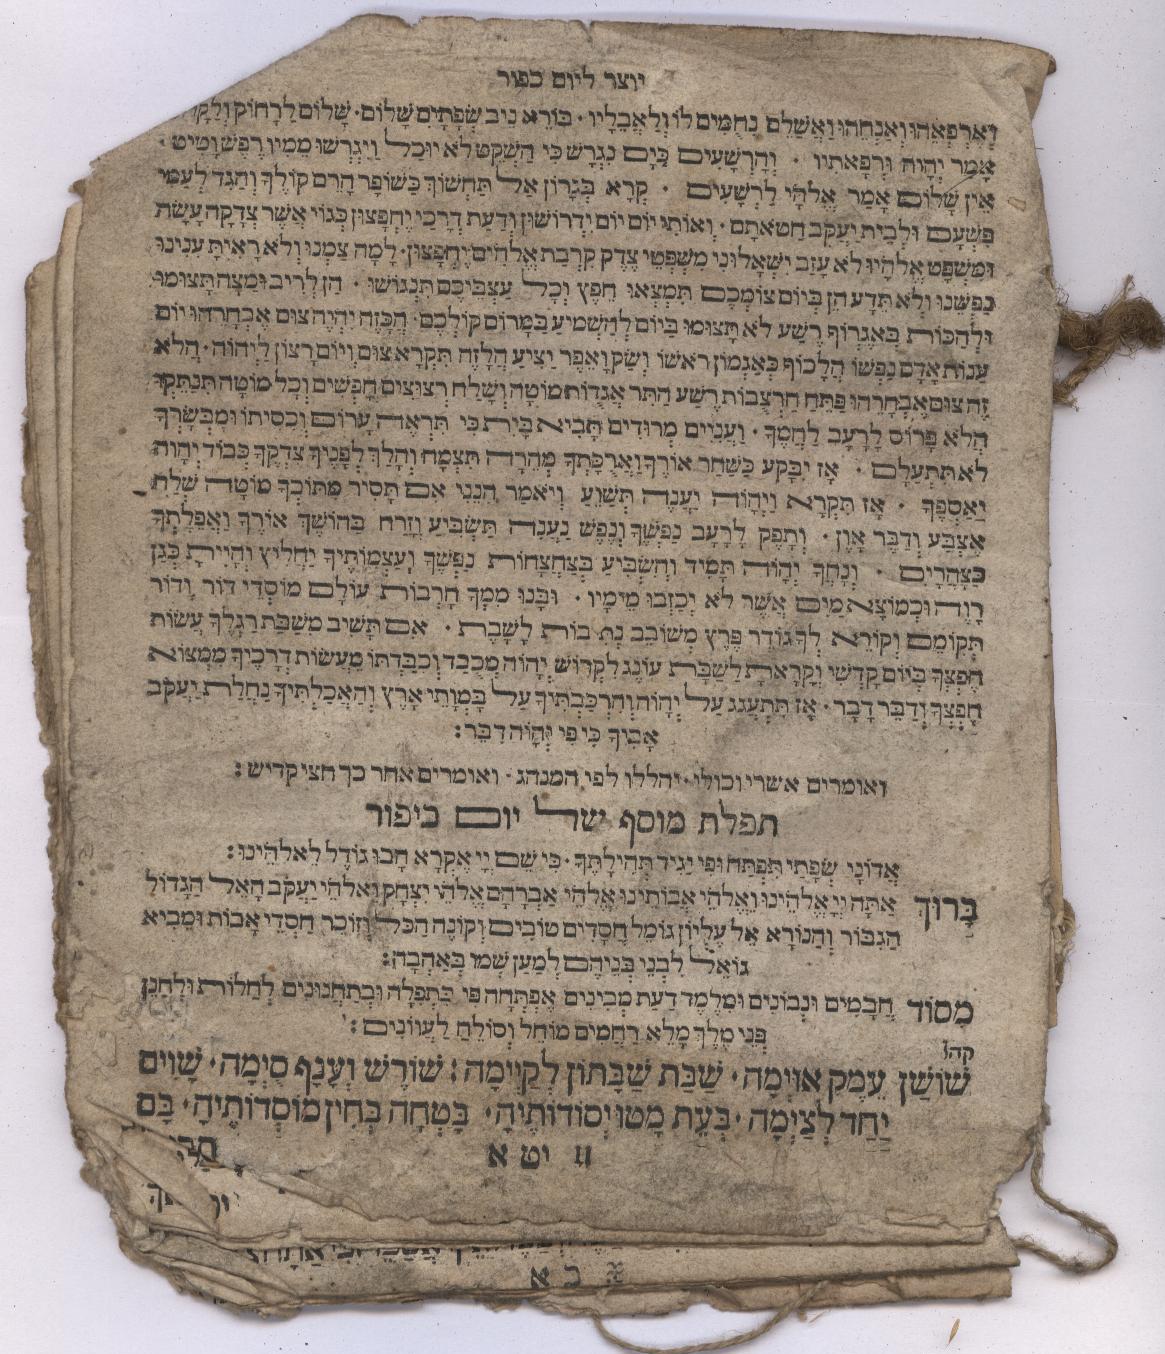 יוצר ליום כפור
וְאֶרְפָּאֵהוּ וְאַנְחֵהוּ וַאֲשַׁלֵּם נִחֻמִים לוֹ וְלַאֲבֵלָיו · בּוֹרֵא נִיב שְׂפָתָיִם שָׁלוֹם · שָׁלוֹם לָרָחוֹק
אָמַר יְהֹוָה וּרְפָאתִיו · וְהָרְשָׁעִים כַּיָּם נִגְרָשׁ כִּי הַשְׁקֵט לֹא יוּכָל וַיִּגְרְשׁוּ מֵימָיו רֶפֶשׁ וָטִיט ·
אֵין שָׁלוֹם אָמַר אֱלֹהַי לָרְשָׁעִים · קְרָא בְגָרוֹן אַל תַּחְשׂוֹךְ כַּשּׁוֹפָר הָרֵם קוֹלֶךָ וְהַגֵּד לְעַמִּי
פִּשְׁעָם וּלְבֵית יַעֲקֹב חַטֹּאתָם · וְאוֹתִי יוֹם יוֹם יִדְרוֹשׁוּן וְדַעַת דְּרָכַי יֶחְפָּצוּן כְּגוֹי אֲשֶׁר צְדָקָה עָשָׂה
וּמִשְׁפַּט אֱלֹהָיו לֹא עָזָב יִשְׁאָלוּנִי מִשְׁפְּטֵי צֶדֶק קִרְבַת אֱלֹהִים יֶחְפָּצוּן · לָמָּה צַּמְנוּ וְלֹא רָאִיתָ עִנִּינוּ
נַפְשֵׁנוּ וְלֹא תֵדָע הֵן בְּיוֹם צוֹמְכֶם תִּמְצְאוּ חֵפֶץ וְכָל עַצְּבֵיכֶם תִּנְגּוֹשׂוּ · הֵן לְרִיב וּמַצָּה תָּצוּמוּ
וּלְהַכּוֹת בְּאֶגְרוֹף רֶשַׁע לֹא תָצוּמוּ כַיּוֹם לְהַשְׁמִיעַ בַּמָּרוֹם קוֹלְכֶם · הֲכָזֶה יִהְיֶה צוּם אֶבְחָרֵהוּ יוֹם
עַנּוֹת אָדָם נַפְשׁוֹ הֲלָכוֹף כְּאַגְמוֹן רֹאשׁוֹ וְשַׂק וָאֵפֶר יַצִּיעַ הֲלָזֶה תִּקְרָא צוּם וְיוֹם רָצוֹן לַיהוָֹה · הֲלֹא
זֶה צוּם אֶבְחָרֵהוּ פַּתֵּחַ חַרְצֻבּוֹת רֶשַׁע הַתֵּר אֲגֻדּוֹת מוֹטָה וְשַׁלַּח רְצוּצִים חָפְשִׁים וְכָל מוֹטָה תְּנַתֵּקוּ
הֲלֹא פָרוֹס לָרָעֵב לַחְמֶךָ · וַעֲנִיִּים מְרוּדִים תָּבִיא בָיִת כִּי תִרְאֶה עָרוֹם וְכִסִּיתוֹ וּמִבְּשָׂרְךָ
לֹא תִתְעַלָּם · אָז יִבָּקַע כַּשַּׁחַר אוֹרֶךָ וַאֲרֻכָתְךָ מְהֵרָה תִצְמָח וְהָלַךְ לְפָנֶיךָ צִדְקֶךָ כְּבוֹד יְהֹוָה
יַאַסְפֶךָ · אָז תִּקְרָא וַיהוָֹה יַעֲנֶה תְּשַׁוַּע וְיֹאמַר הִנֵּנִי אִם תָּסִיר מִתּוֹכְךָ מוֹטָה שְׁלַח
אֶצְבַּע וְדַבֶּר אָוֶן · וְתָפֵק לָרָעֵב נַפְשֶׁךָ וְנֶפֶשׁ נַעֲנָה תַּשְׂבִּיעַ וְזָרַח בַּחוֹשֶׁךְ אוֹרֶךָ וַאֲפֵלָתְךָ
כַּצָּהֳרָיִם · וְנָחֲךָ יְהֹוָה תָּמִיד וְהִשְׂבִּיעַ בְּצַחְצָחוֹת נַפְשֶׁךָ וְעַצְמוֹתֶיךָ יַחֲלִיץ וְהָיִיתָ כְּגַן
רָוֶה וּכְמוֹצָא מַיִם אֲשֶׁר לֹא יְכַזְּבוּ מֵימָיו · וּבָנוּ מִמְּךָ חָרְבוֹת עוֹלָם מוֹסְדֵי דוֹר וָדוֹר
תְּקוֹמֵם וְקוֹרָא לְךָ גּוֹדֵר פֶּרֶץ מְשׁוֹבֵב נְתִבוֹת לָשָׁבֶת · אִם תָּשִׁיב מִשַּׁבָּת רַגְלֶךָ עֲשׂוֹת
חֲפָצֶךָ בְּיוֹם קָדְשִׁי וְקָרָאתָ לַשַּׁבָּת עוֹנֶג לִקְדוֹשׁ יְהֹוָה מְכֻבָּד וְכִבַּדְתּוֹ מֵעֲשׂוֹת דְּרָכֶיךָ מִמְּצוֹא
חֶפְצְךָ וְדַבֵּר דָּבָר · אָז תִּתְעַנַּג עַל יְהֹוָה וְהִרְכַּבְתִּיךָ עַל בָּמוֹתֵי אָרֶץ וְהַאֲכַלְתִּיךָ נַחֲלַת יַעֲקֹב
אָבִיךָ כִּי פִּי יְהֹוָה דִּבֵּר:
ואומרים אשרי וכולי · יהללו לפי המנהג · ואומרים אחר כך חצי קדיש:
תפלת מוסף של יום כיפור
אֲדוֹנָי שְׂפָתַי תִּפְתָּח וּפִי יַגִּיד תְּהִילָתֶךָ · כִּי שֵׁם יְיָ אֶקְרָא הָבוּ גוֹדֶל לֵאלֹהֵינוּ:
בָּרוּךְ אַתָּה יְיָ אֱלֹהֵינוּ וֵאלֹהֵי אֲבוֹתֵינוּ אֱלֹהֵי אַבְרָהָם אֱלֹהֵי יִצְחָק וֵאלֹהֵי יַעֲקֹב הָאֵל הַגָּדוֹל
הַגִּבּוֹר וְהַנּוֹרָא אֵל עֶלְיוֹן גּוֹמֵל חֲסָדִים טוֹבִים וְקוֹנֵה הַכֹּל וְזוֹכֵר חַסְדֵי אָבוֹת וּמֵבִיא
גוֹאֵל לִבְנֵי בְנֵיהֶם לְמַעַן שְׁמוֹ בְּאַהֲבָה:
מִסּוֹד חֲכָמִים וּנְבוֹנִים וּמִלֶּמֶד דַּעַת מְבִינִים אֶפְתְּחָה פִּי בִּתְפִלָּה וּבְתַחֲנוּנִים לְחַלּוֹת וּלְחַנֵּן
פְּנֵי מֶלֶךְ מָלֵא רַחֲמִים מוֹחֵל וְסוֹלֵחַ לַעֲווֹנִים:
קהל
שׁוֹשַׁן עֵמֶק אוּיְמָה · שַׁבַּת שַׁבָּתוֹן לְקַיְימָה: שׁוֹרֶשׁ וְעָנָף סֻיְמָה · שָׁוִים
יַחַד לְצַיְּמָה · בְּעֵת מָטוּ יְסוֹדוֹתֶיהָ · בָּטְחָה בְּחִין מוֹסְדוֹתֶיהָ · בָּם
יט א
כ א